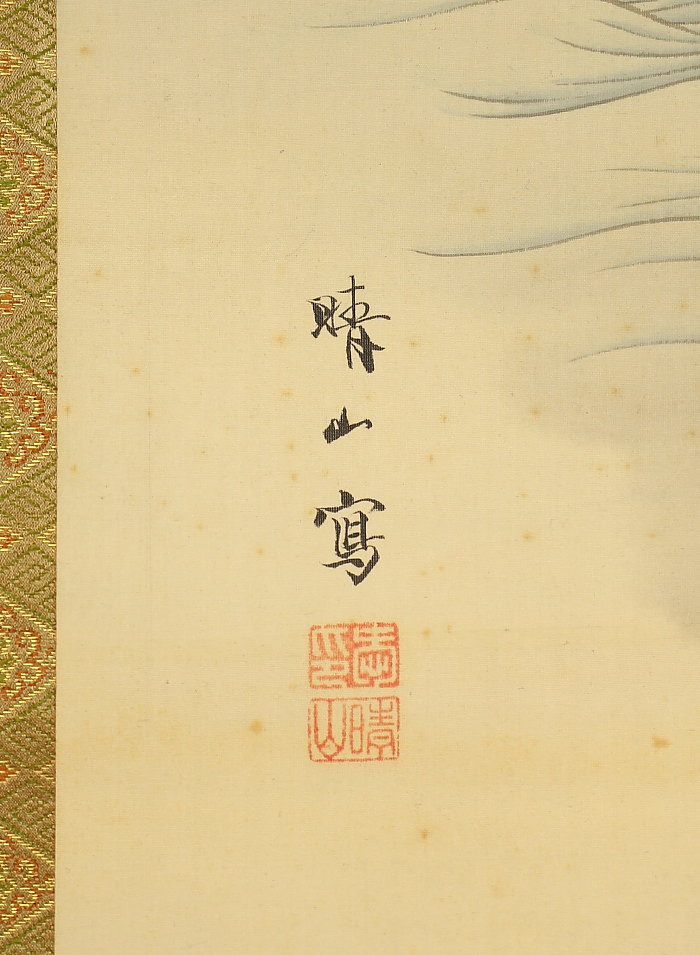 晴山寫
晴山